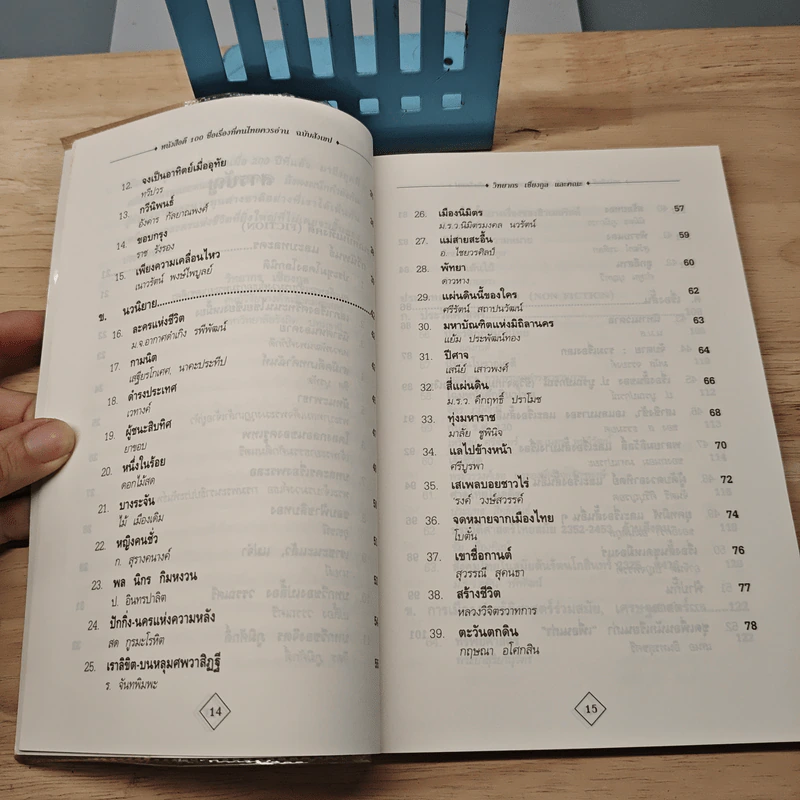 หนังสือดี 100 ชื่อเรื่องที่คนไทยควรอ่าน ฉบับสังเขป
12. จงเป็นอาทิตย์เมื่ออุทัย
ทวีปวร
13. กวีนิพนธ์
อังคาร กัลยาณพงศ์
14. ขอบกรุง
ราช รังรอง
15. เพียงความเคลื่อนไหว
เนาวรัตน์ พงษ์ไพบูลย์
ข. นวนิยาย
16. ละครแห่งชีวิต
ม.จ.อากาศดำเกิง รพีพัฒน์
17. กามนิต
เสฐียรโกเศศ, นาคะประทีป
18. ดำรงประเทศ
เวทางค์
19. ผู้ชนะสิบทิศ
ยาขอบ
20. หนึ่งในร้อย
ดอกไม้สด
21. บางระจัน
ไม้ เมืองเดิม
22. หญิงคนชั่ว
ก. สุรางคนางค์
23. พล นิกร กิมหงวน
ป. อินทรปาลิต
24. ปักกิ่ง-นครแห่งความหลัง
สด กูรมะโรหิต
25. เราลิขิต-บนหลุมศพวาสิฏฐี
ร. จันทพิมพะ
14
วิทยากร เชียงกูล และคณะ
26. เมืองนิมิตร 57
ม.ร.ว.นิมิตรมงคล นวรัตน์
27. แม่สายสะอื้น 59
อ. ไชยวรศิลป์
28. พัทยา 60
ดาวหาง
29. แผ่นดินนี้ของใคร 62
ศรีรัตน์ สถาปนวัฒน์
30. มหาบัณฑิตแห่งมิถิลานคร 63
แย้ม ประพัฒน์ทอง
31. ปีศาจ 64
เสนีย์ เสาวพงศ์
32. สี่แผ่นดิน 66
ม.ร.ว. คึกฤทธิ์ ปราโมช
33. ทุ่งมหาราช 68
มาลัย ชูพินิจ
34. แลไปข้างหน้า 70
ศรีบูรพา
35. เสเพลบอยชาวไร่ 72
'รงค์ วงษ์สวรรค์
36. จดหมายจากเมืองไทย 74
โบตั๋น
37. เขาชื่อกานต์ 76
สุวรรณี สุคนธา
38. สร้างชีวิต 77
หลวงวิจิตรวาทการ
39. ตะวันตกดิน 78
กฤษณา อโศกสิน
15